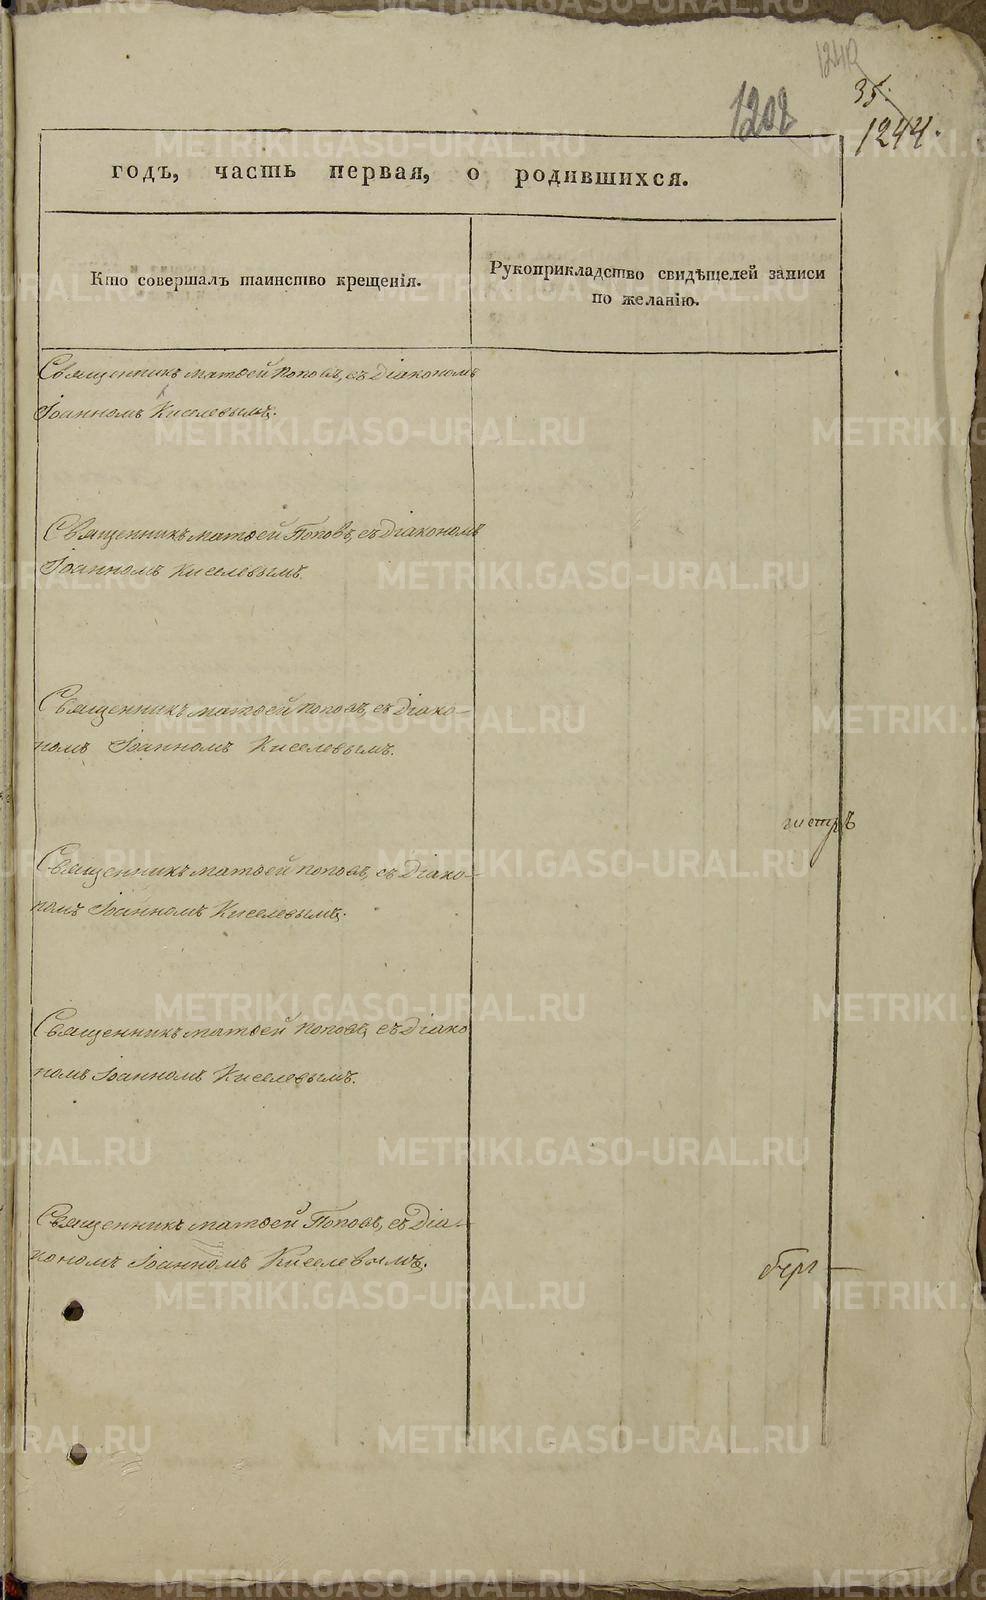 1240
1202
35.
1244.
годъ, часть первая, о родившихся.
Кто совершалъ таинство крещенія.
Рукоприкладство свидѣтелей записи
по желанію.
Священникъ матѳей Поповъ, съ Діакономъ
Іоанномъ Киселевымъ.
Священникъ матѳей Поповъ, съ Діакономъ
Іоанномъ Киселевымъ.
Священникъ матѳей Поповъ, съ Діако-
номъ Іоанномъ Киселевымъ.
Священникъ матѳей Поповъ, съ Діако-
номъ Іоанномъ Киселевымъ.
Священникъ матѳей Поповъ, съ Діако
номъ Іоанномъ Киселевымъ.
Священникъ матѳей Поповъ, съ Діа-
кономъ Іоанномъ Киселевымъ.
METRIKI.GASO-URAL.RU